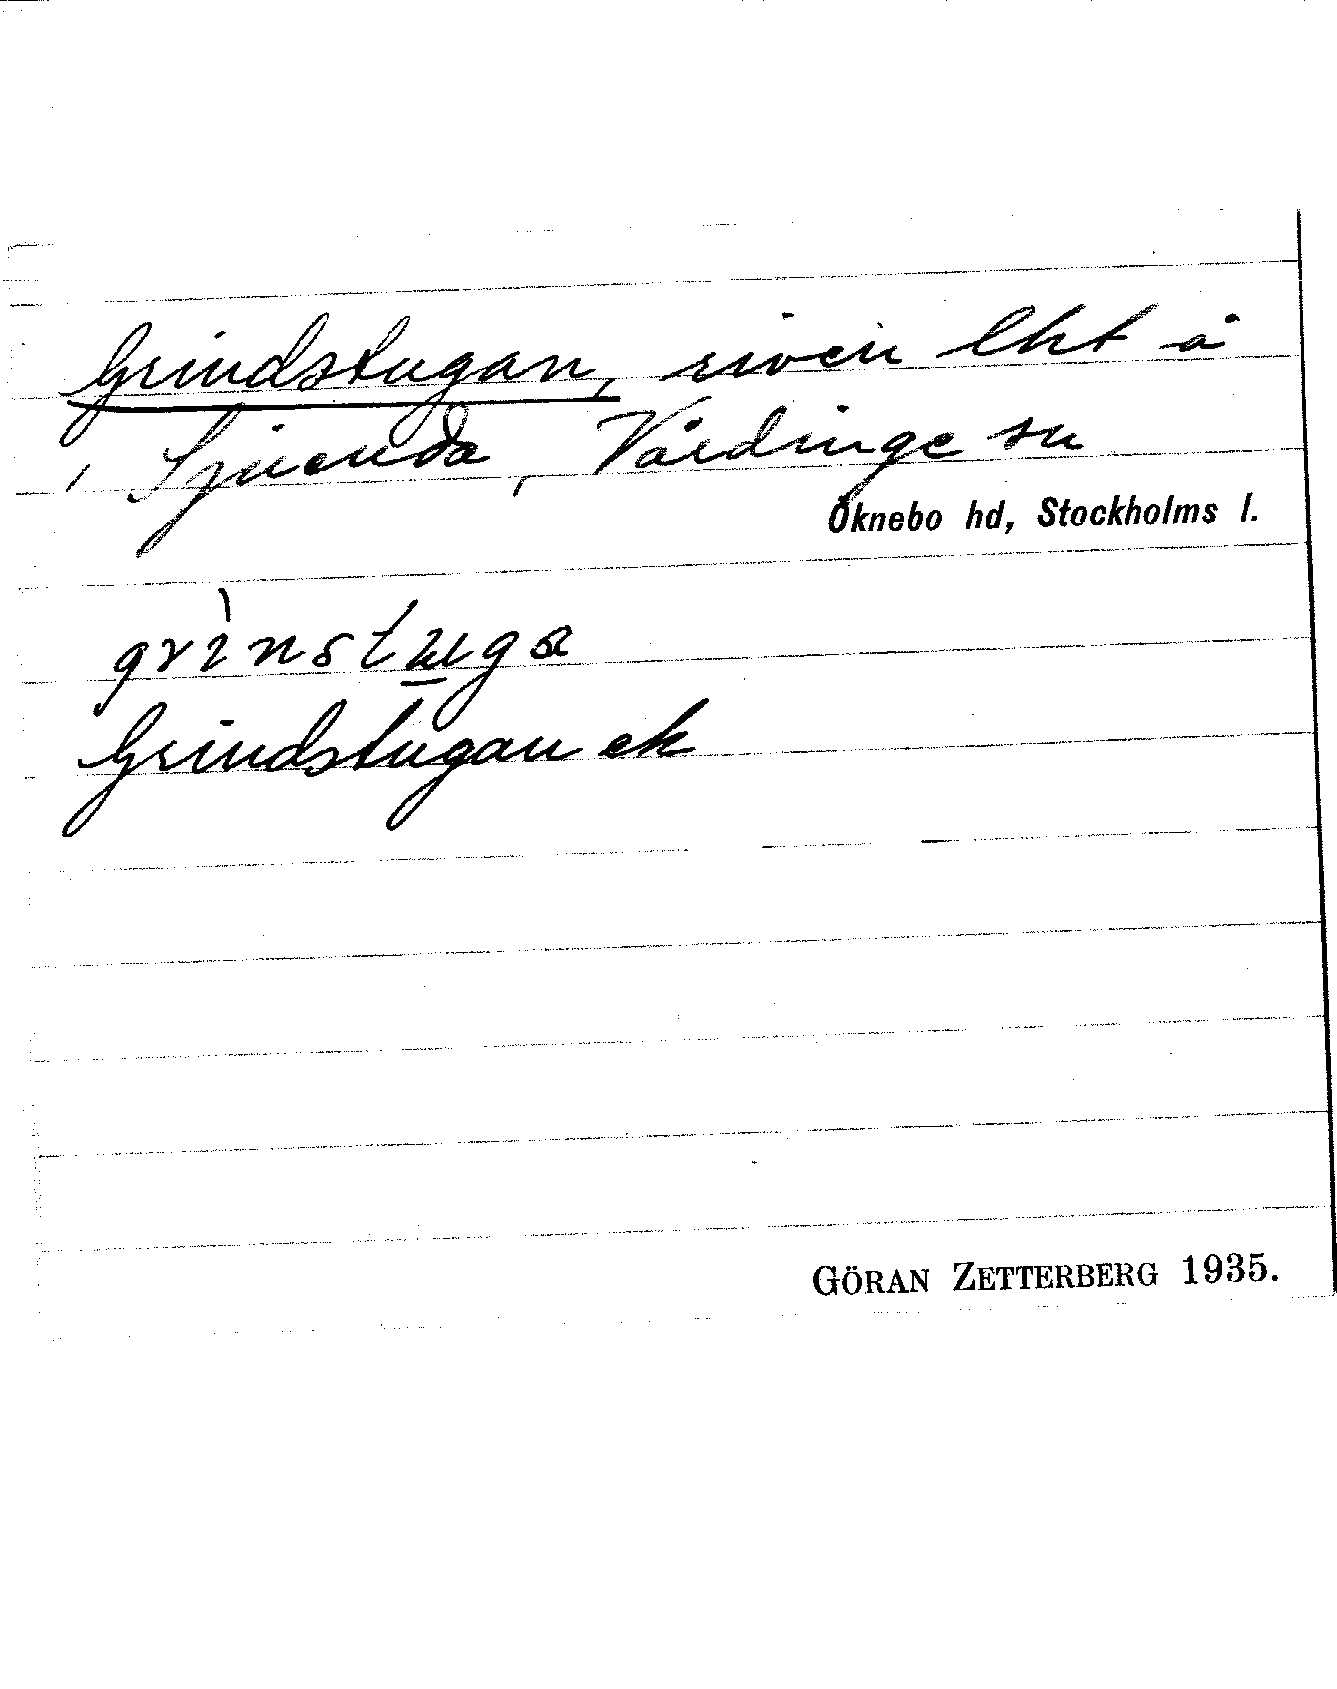 Grindstugan, riven lht å
Sjuenda, Vårdinge sn
Öknebo hd, Stockholms l.
grìnstugа
Grindstugan ek
GÖRAN ZETTERBERG 1935.